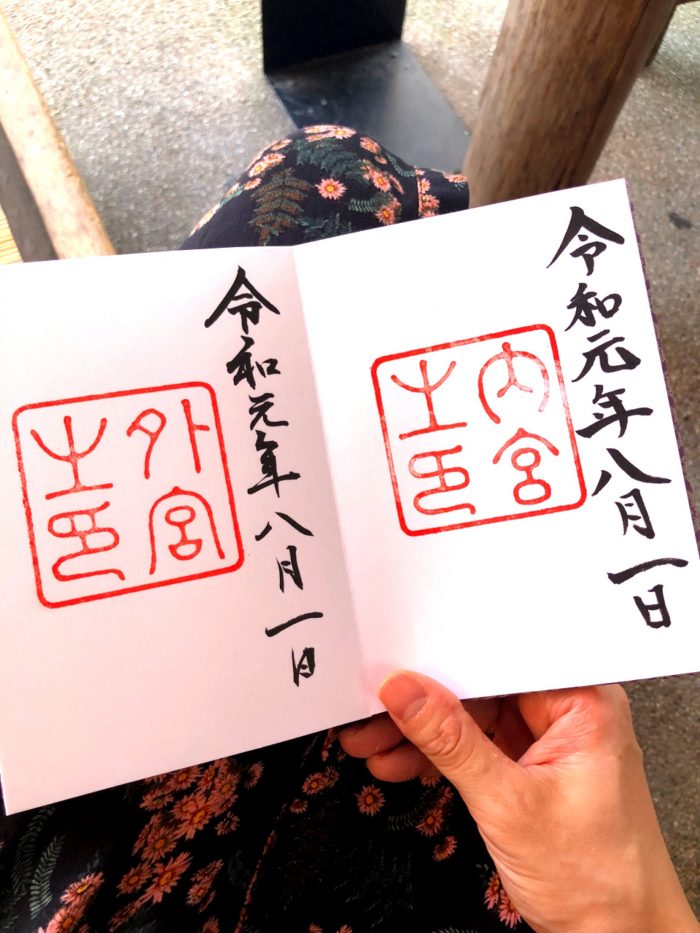 令和元年八月一日
内宮
之印
令和元年八月一日
外宮
之印